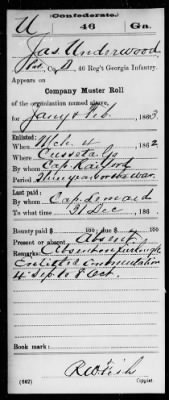 (Confederate.)
U 46 Ga.
Jas Underwood
Pvt, Co. D, 46 Reg't Georgia Infantry.
Appears on
Company Muster Roll
of the organization named above,
for Jany & Feb, 1863.
Enlisted:
When Mch 4, 1862.
Where Cusseta Ga
By whom
Period 3 years or the war
Last paid:
By whom Cap.
To what time 31 Dec, 186 .
Bounty paid $ 100; due $ 100
Present or absent Absent
Remarks: Absent on furlough
Entitled to commutation
4 Sep to 8 Oct.
Book mark:
(642) Copyist.